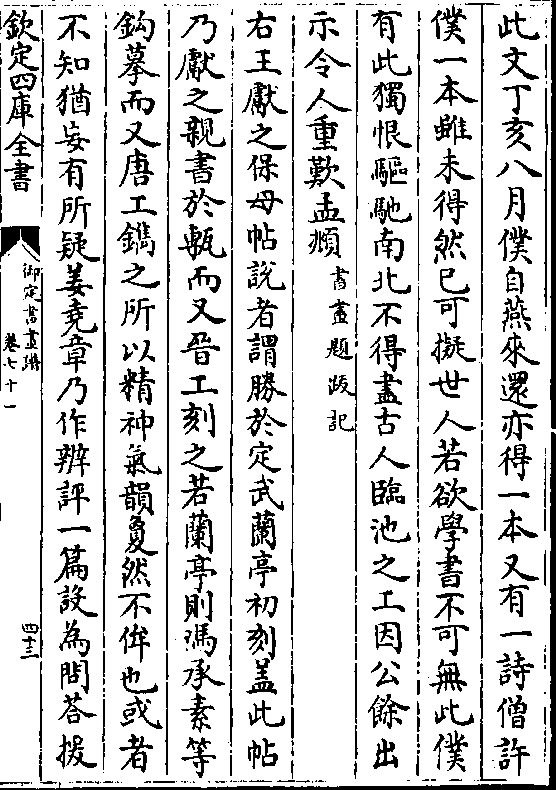 此文丁亥八月僕自燕來還亦得一本又有一詩僧許
僕一本雖未得然已可擬世人若欲學書不可無此僕
有此獨恨驅馳南北不得盡古人臨池之工因公餘出
示令人重歎孟頫書畫題跋記
右王獻之保母帖說者謂勝於定武蘭亭初刻盖此帖
乃獻之親書於甎而又晉工刻之若蘭亭則馮承素等
鈎摹而又唐工鐫之所以精神氣韻夐然不侔也或者
不知猶妄有所疑姜堯章乃作辨評一篇設為問荅援
欽定四庫全書
御定書畫譜
卷七十一
四十三